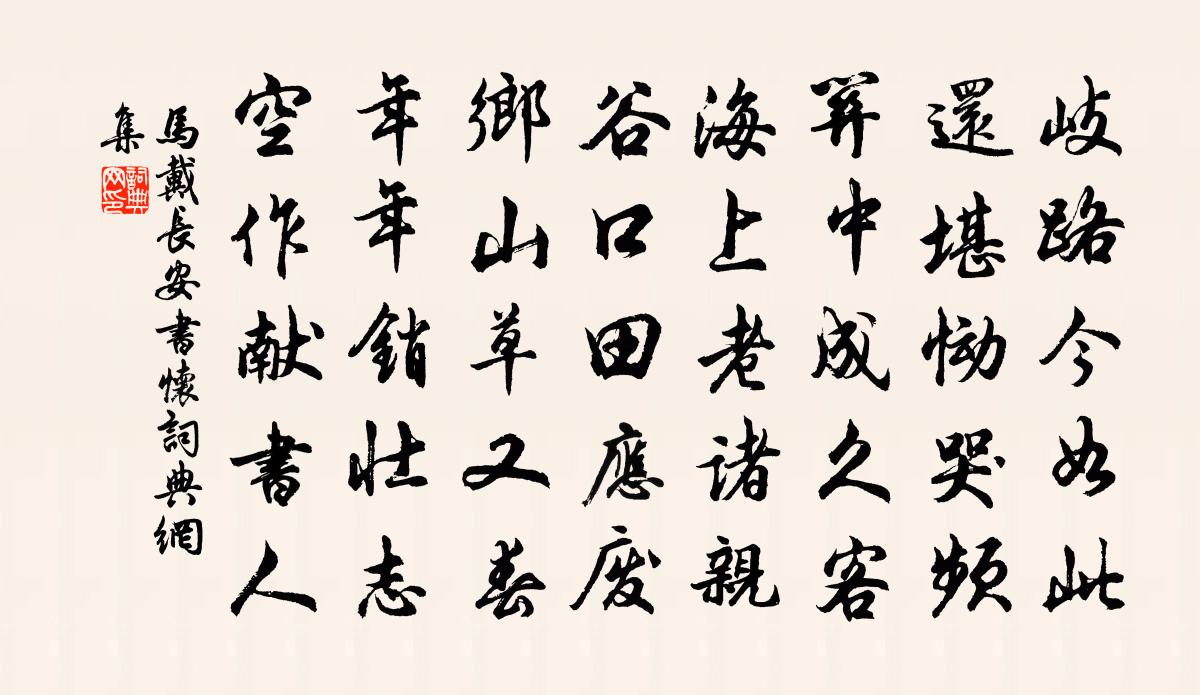 岐路今如此
還堪慟哭頻
關中成久客
海上老諸親
谷口田應廢
鄉山草又春
年年銷壯志
空作献書人
馬戴長安書懷詞典網
集
詞典
网印